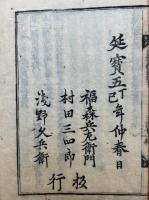 延寳五丁巳年仲春日
福森兵左衛門
村田三四郎
浅野久兵衛
板行